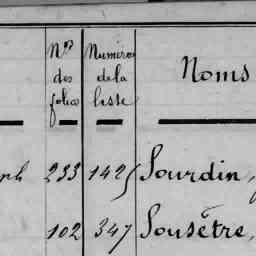 Nos des folios Numéros de la liste Noms
ph 233 1425 Sourdin,
102 347 Sousêtre,